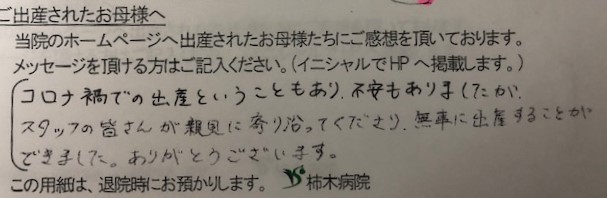 ご出産されたお母様へ
当院のホームページへ出産されたお母様たちにご感想を頂いております。
メッセージを頂ける方はご記入ください。(イニシャルでHPへ掲載します。)
コロナ禍での出産ということもあり、不安もありましたが、
スタッフの皆さんが親身に寄り沿ってくださり、無事に出産することが
できました。ありがとうございます。
この用紙は、退院時にお預かりします。 柿木病院